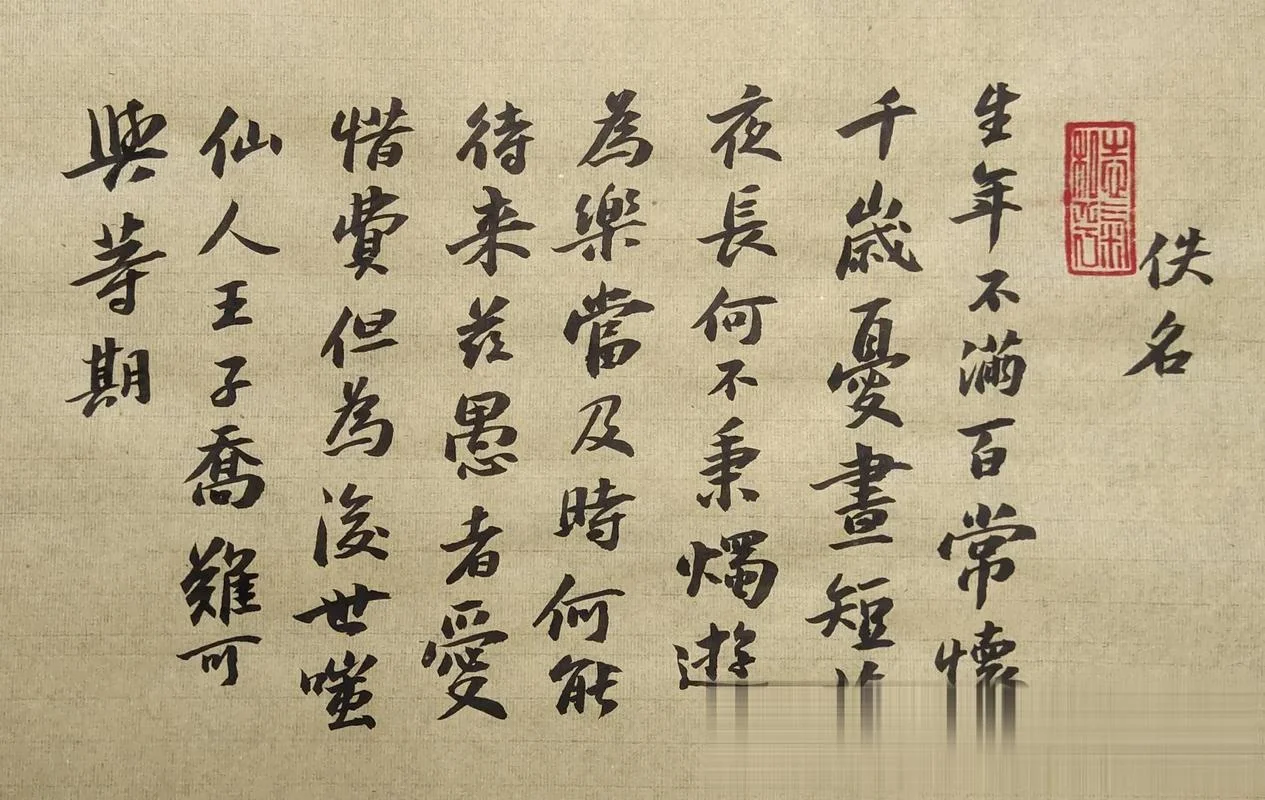 佚名
生年不滿百常懷
千歲憂晝短
夜長何不秉燭遊
為樂當及時何能
待来茲愚者愛
惜費但為後世嗤
仙人王子喬難可
與等期